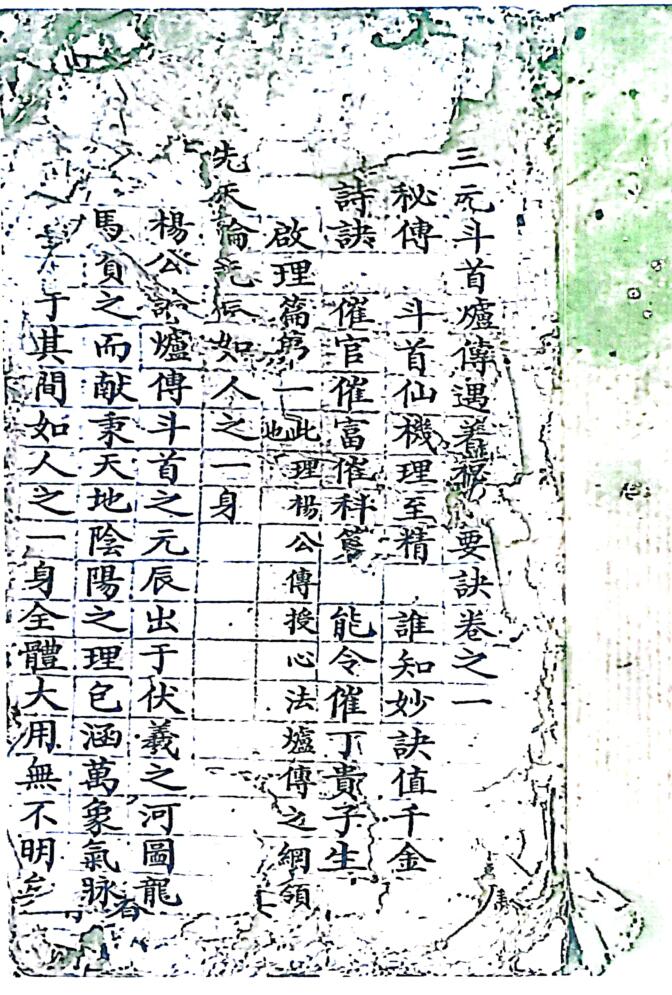 三元斗首爐傳選著秘要訣卷之一
秘傳　斗首仙機理至精　誰知妙訣值千金
詩訣　催官催富催科第　能令催丁貴子生
啟理篇第一　此理楊公傳授心法爐傳之綱領也
先天倫元辰如人之一身
楊公論爐傳斗首之元辰出于伏羲之河圖龍
馬負之而献秉天地陰陽之理包涵萬象氣脉
于其間如人之一身全體大用無不明矣